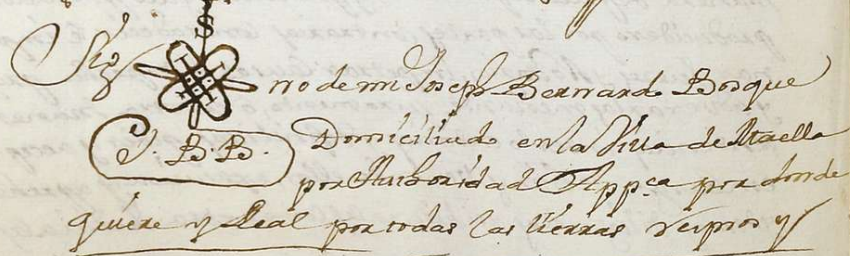 S
Sig no de mi Joseph Bernardo Bosque
J. B. B. Domiciliado en la Villa de Maella
por Authoridad Appca por donde
quiere y Real por todas las tierras Reynos y